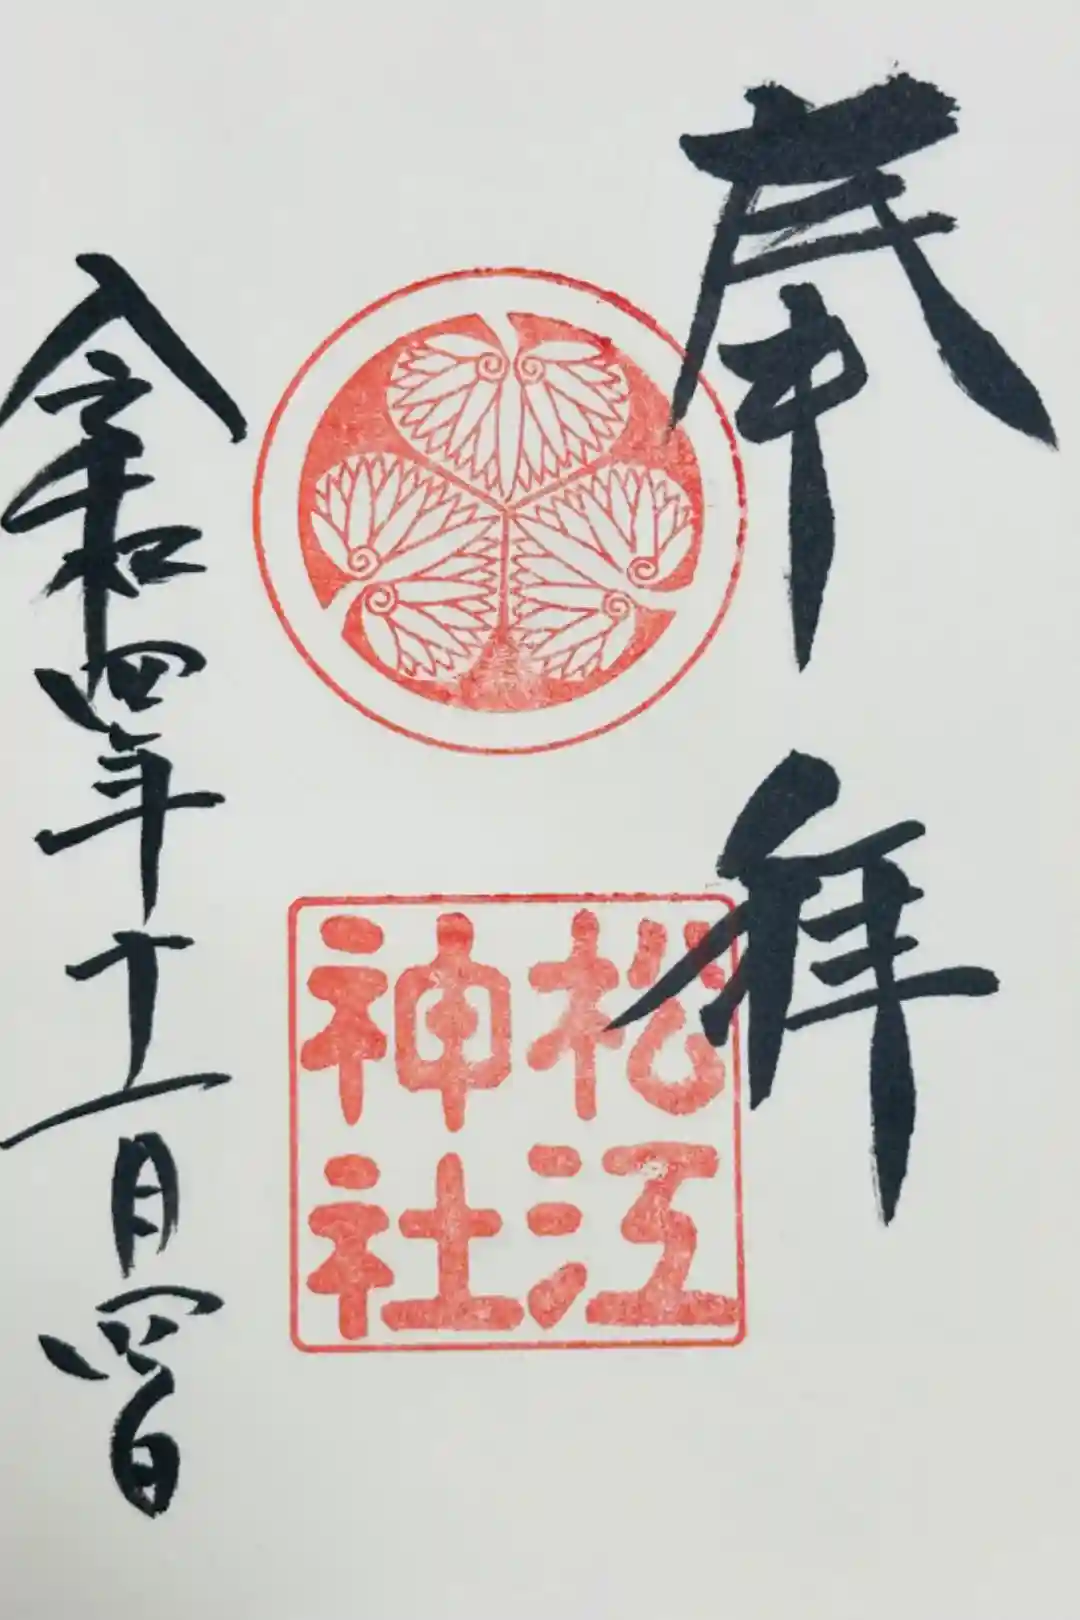 奉拝
松江
神社
令和四年十一月四日